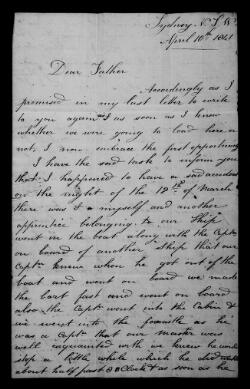 Sydney N.S.W.
April 10th 1841
Dear Father
Accordingly as I
promised in my last letter to write
to you again as soon as I knew
whether we were going to load here or
not, I now embrace the first opportunity
I have the sad note to inform you
that I happened to have a sad accident
on the night of the 12th of March
there was myself and another
apprentice belonging to our Ship
went in the boat along with the Captn
on board of another Ship that our
Captn knew when he got out of the
boat and went on board we made
the boat fast and went on board
also, the Captn went into the Cabin &
we went into the as he
was a Captn that our master was
well acquainted with we knew he would
stop a little while which he did
about half past o Clock & as soon as he